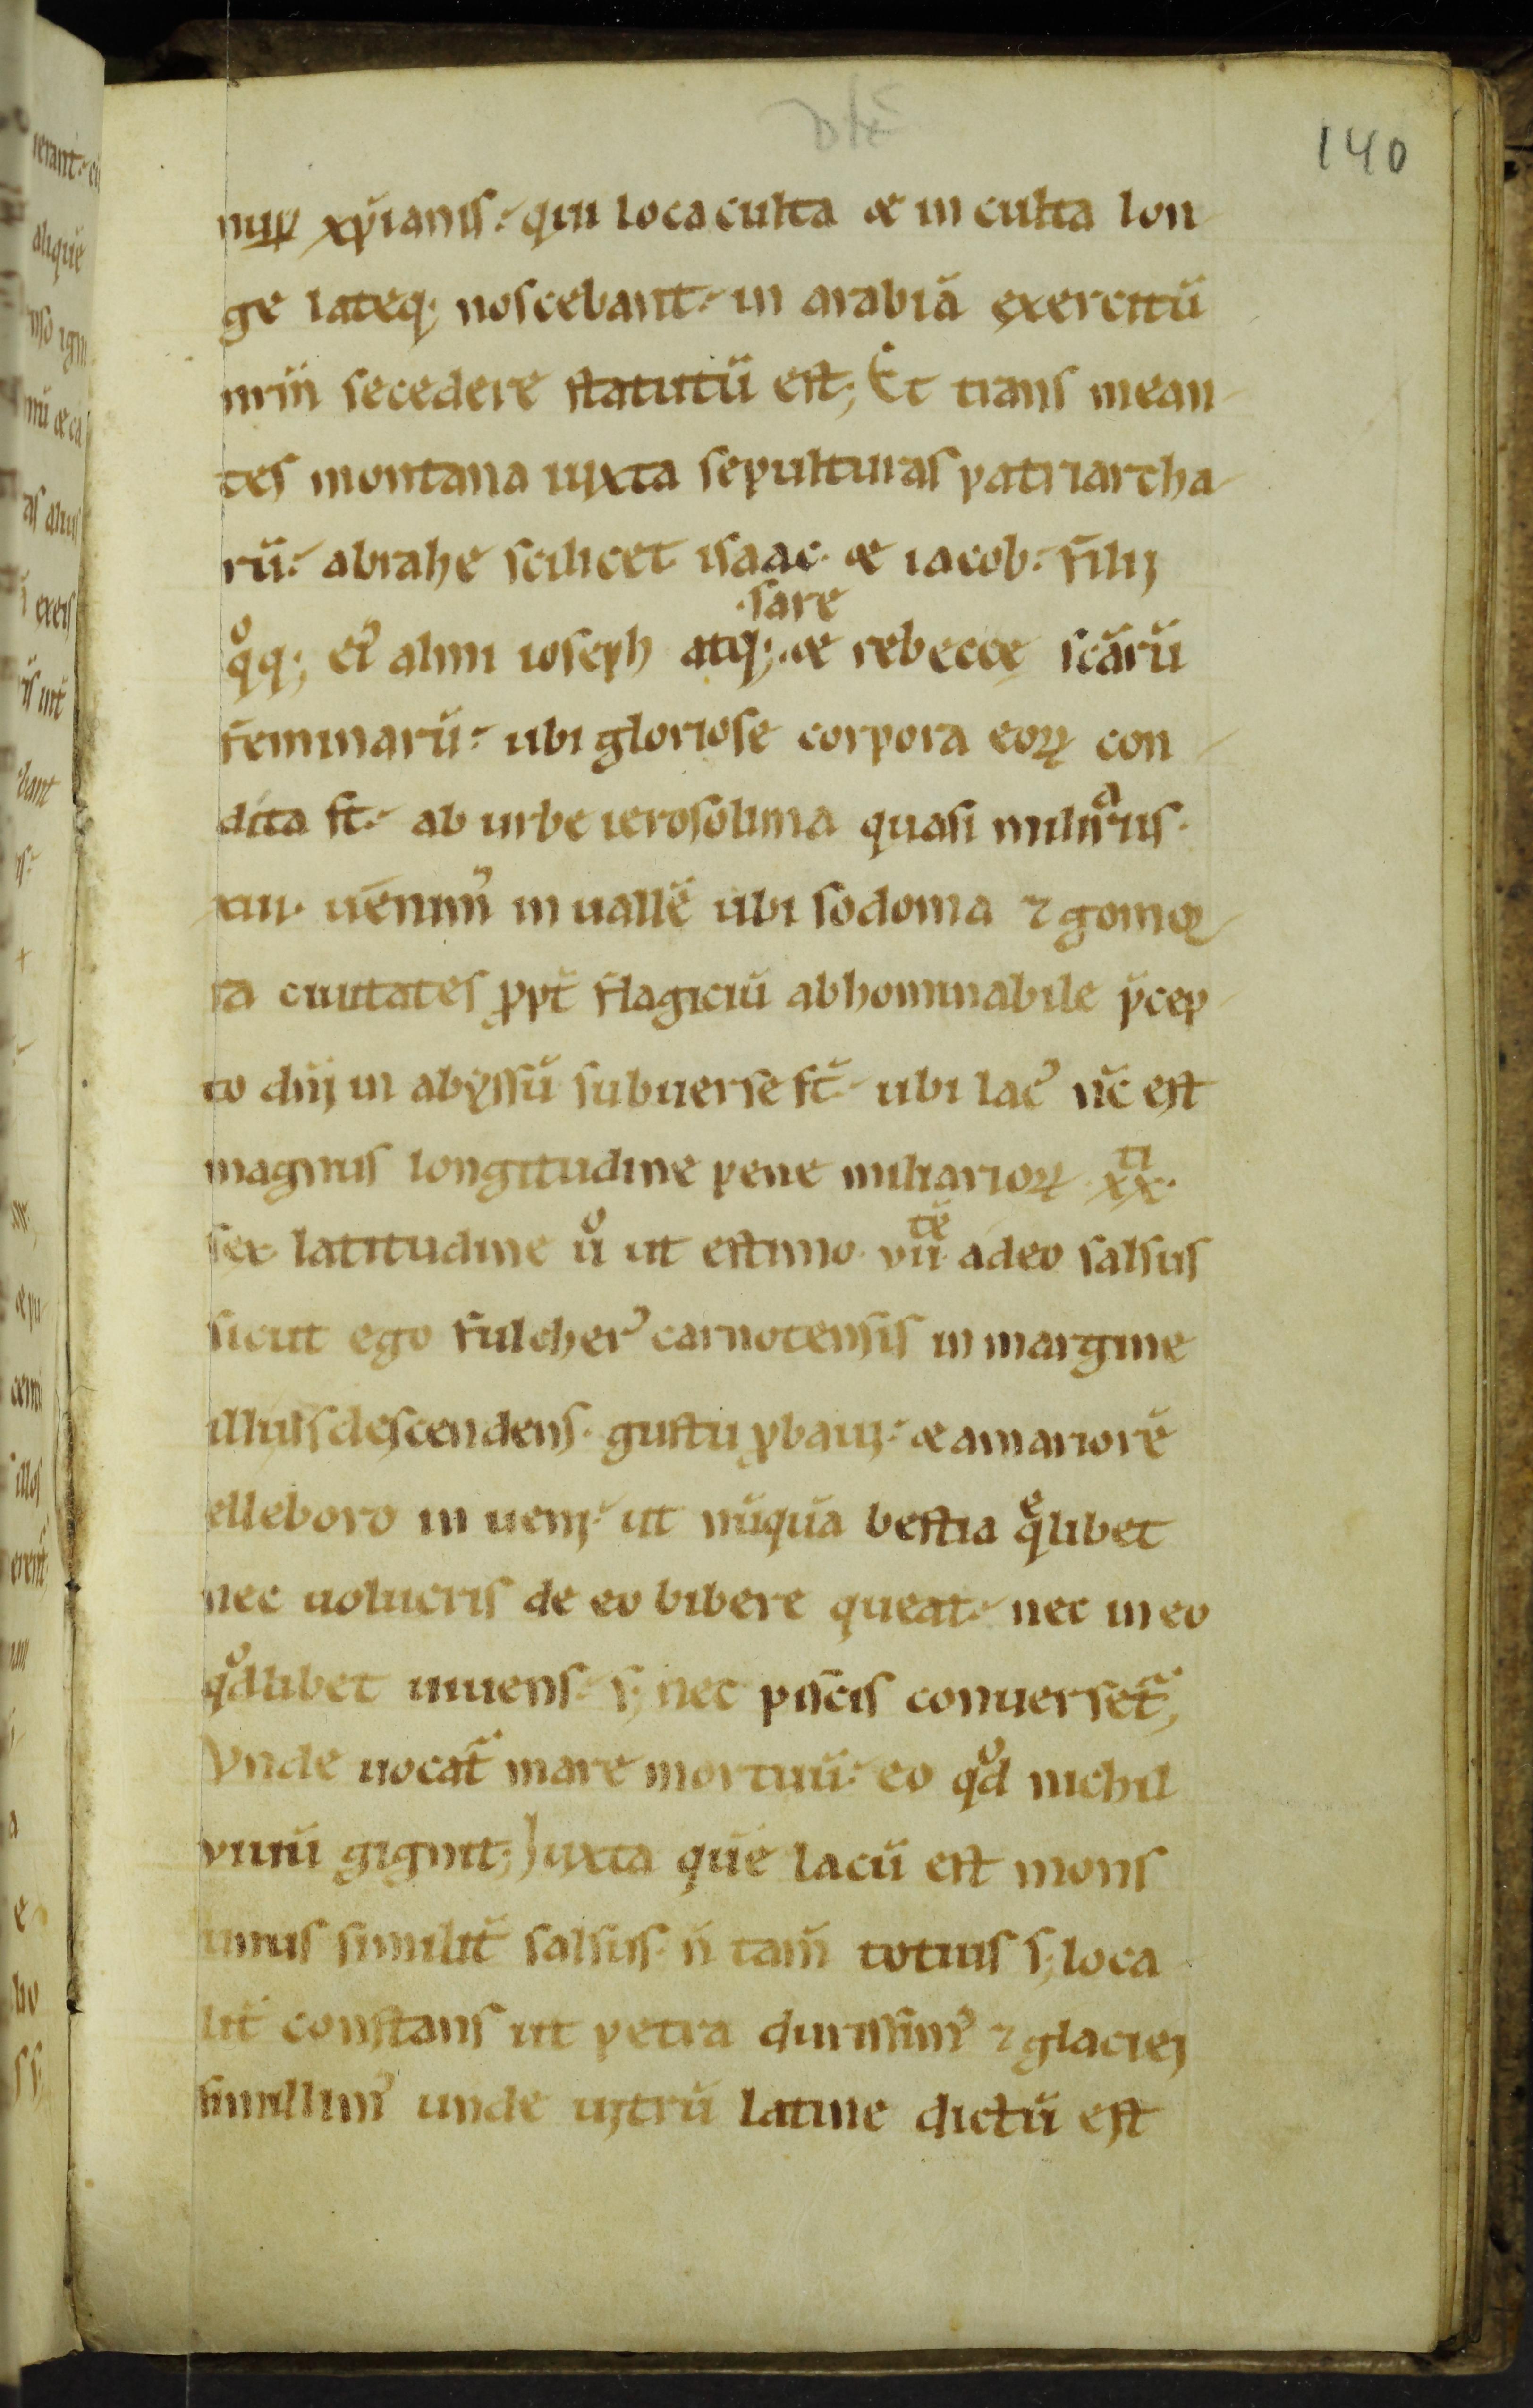 140
nuꝑ xp̄ianis. qui loca culta & in culta lon
ge lateq; noscebant. in arabiā exercitū
nr̄m secedere statutū est; Et trans mean-
tes montana iuxta sepulturas patriarcha-
rū. abrahę scilicet isaac. & iacob. filij
sare
qͦq; ei᾽ almi ioseph atq; & rebecce scārū
feminarū. ubi gloriose corpora eoꝝ con-
dita st̄. ab urbe ierosolima quasi miliarijs.
xiii. uenim᾽ in uallē ubi sodoma ⁊ gomor-
ra ciuitates ꝓpt̄ flagiciū abhominabile p̄cep-
to dn̄j in abyssū subuerse st̄. ubi lac᾽ nc̄ est
magnus longitudine pene miliarioꝝ .xxti.
sex latitudine uͦ ut estimo. viitē adeo salsus
sicut ego fulcher᾽ carnotensis in margine
illius descendens. gustu ꝓbauj. & amariorē
elleboro in uenj. ut nūquā bestia qͤlibet
nec uolucris de eo bibere queat. nec in eo
qͦdlibet uiuens. s; nec piscis conuerset᷑;
Vnde uocat᷑ mare mortuū. eo qͦd nichil
viuū gignit; Iuxta quē lacū est mons
unus similit̄ salsus. n̄ tam̄ totus s; loca
lit̄ constans ut petra durissim᾽ ⁊ glaciej
simillim᾽ unde uitrū latine dictū est